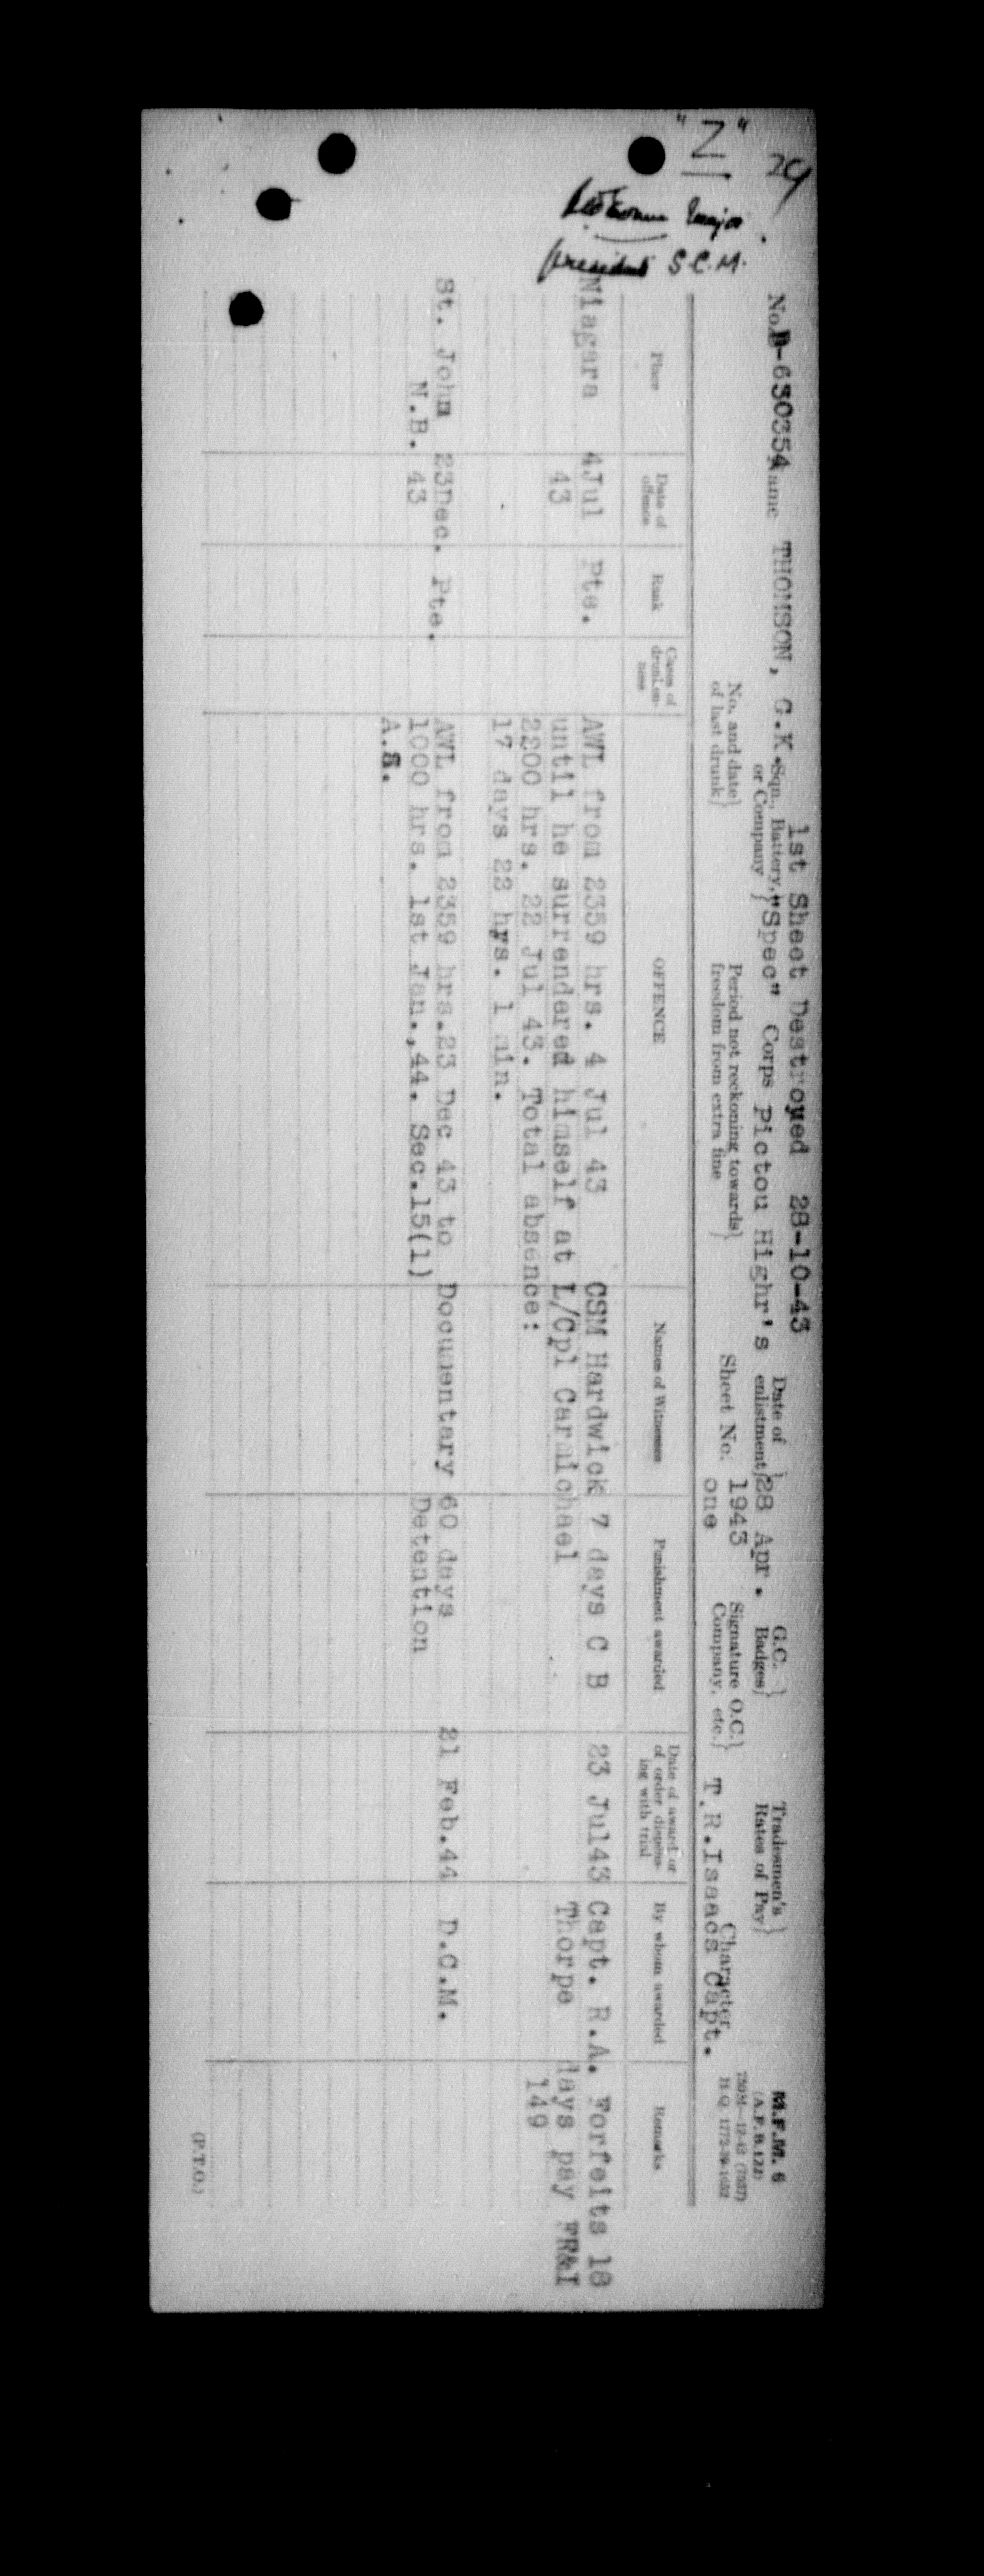 "Z"
29
Major
president S.C.M.
1st Sheet Destroyed 28-10-43
No. D-630354 Name THOMSON, G.K. Sqn., Battery, or Company "Spec" Corps Pictou Highr's Date of enlistment 28 Apr. 1943 G.C. Badges Tradesmen's Rates of Pay M.F.M. 6
(A.F.B.122)
No. and date of last drunk Period not reckoning towards freedom from extra fine Sheet No. one Signature O.C. Company, etc. T.R.Isaacs Capt. Character
Place Date of offence Rank Cases of drunkenness OFFENCE Names of Witnesses Punishment awarded Date of award or of order dispensing with trial By whom awarded Remarks
Niagara 4Jul Pte. AWL from 2359 hrs. 4 Jul 43 CSM Hardwick 7 days C B 23 Jul43 Capt. R.A. Forfeits 18
43 until he surrendered himself at L/Cpl Carmichael Thorpe days pay FR&I
2200 hrs. 22 Jul 43. Total absence: 149
17 days 22 hrs. 1 min.
St. John 23Dec. Pte. AWL from 2359 hrs.23 Dec 43 to Documentary 60 days 21 Feb.44 D.C.M.
N.B. 43 1000 hrs. 1st Jan.,44. Sec.15(1) Detention
A.A.
(P.T.O.)